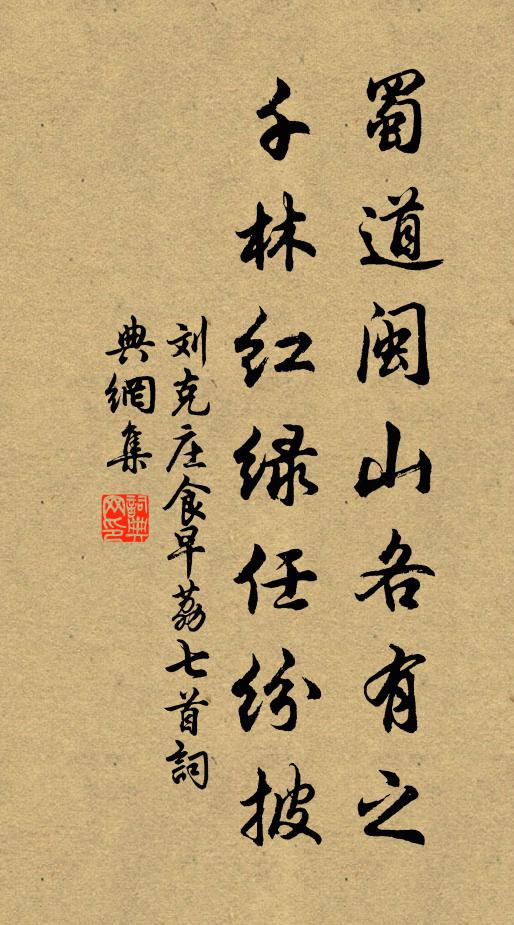 蜀道闽山各有之
千林红緑任纷披
刘克庄食早荔七首詞
典網集
詞典
网印